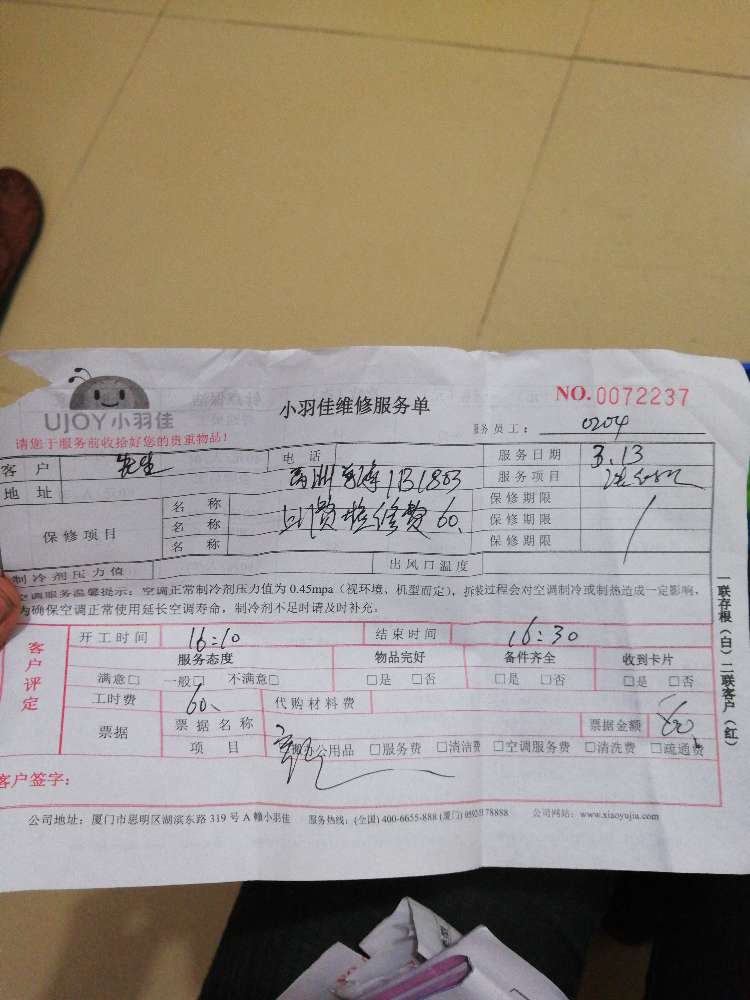 UJOY小羽佳
小羽佳维修服务单
NO.0072237
请您于服务前收拾好您的贵重物品!
服务员工: 0204
客户 先生 电话 服务日期 3.13
地址 1B1803 服务项目
保修项目 名称 保修期限
名称 检修费60. 保修期限
名称 保修期限
制冷剂压力值 出风口温度
空调服务温馨提示:空调正常制冷剂压力值为 0.45mpa(视环境、机型而定),拆装过程会对空调制冷或制热造成一定影响,
为确保空调正常使用延长空调寿命,制冷剂不足时请及时补充。
客户评定
开工时间 16:10 结束时间 16:30
服务态度 物品完好 备件齐全 收到卡片
满意□ 一般□ 不满意□ □是 □否 □是 □否 □是 □否
工时费 60. 代购材料费
票据 票据名称 票据金额 60.
项目 办公用品 □服务费 □清洁费 □空调服务费 □清洗费 □疏通费
客户签字:
一联存根(白)二联客户(红)
公司地址:厦门市思明区湖滨东路 319 号 A 幢小羽佳 服务热线:(全国) 400-6655-888 (厦门) 公司网站:www.xiaoyujia.com